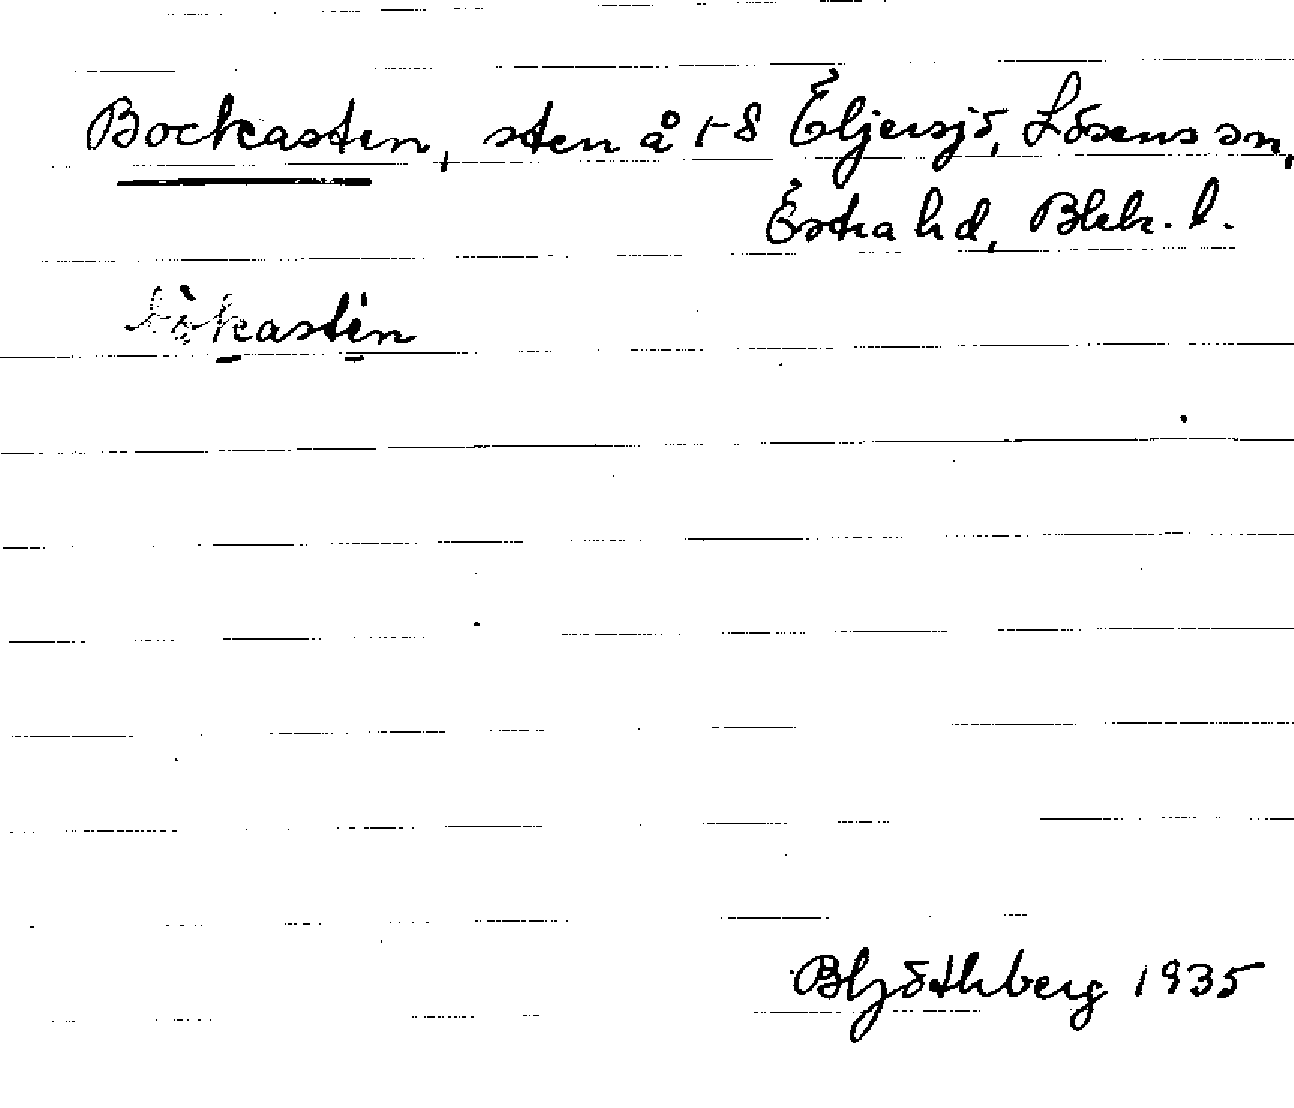 Bockasten, sten å 1-8 Eljersjö, Lösens sn,
Östra hd, Blek. l.
bòkastèn
B Hjöthberg 1935